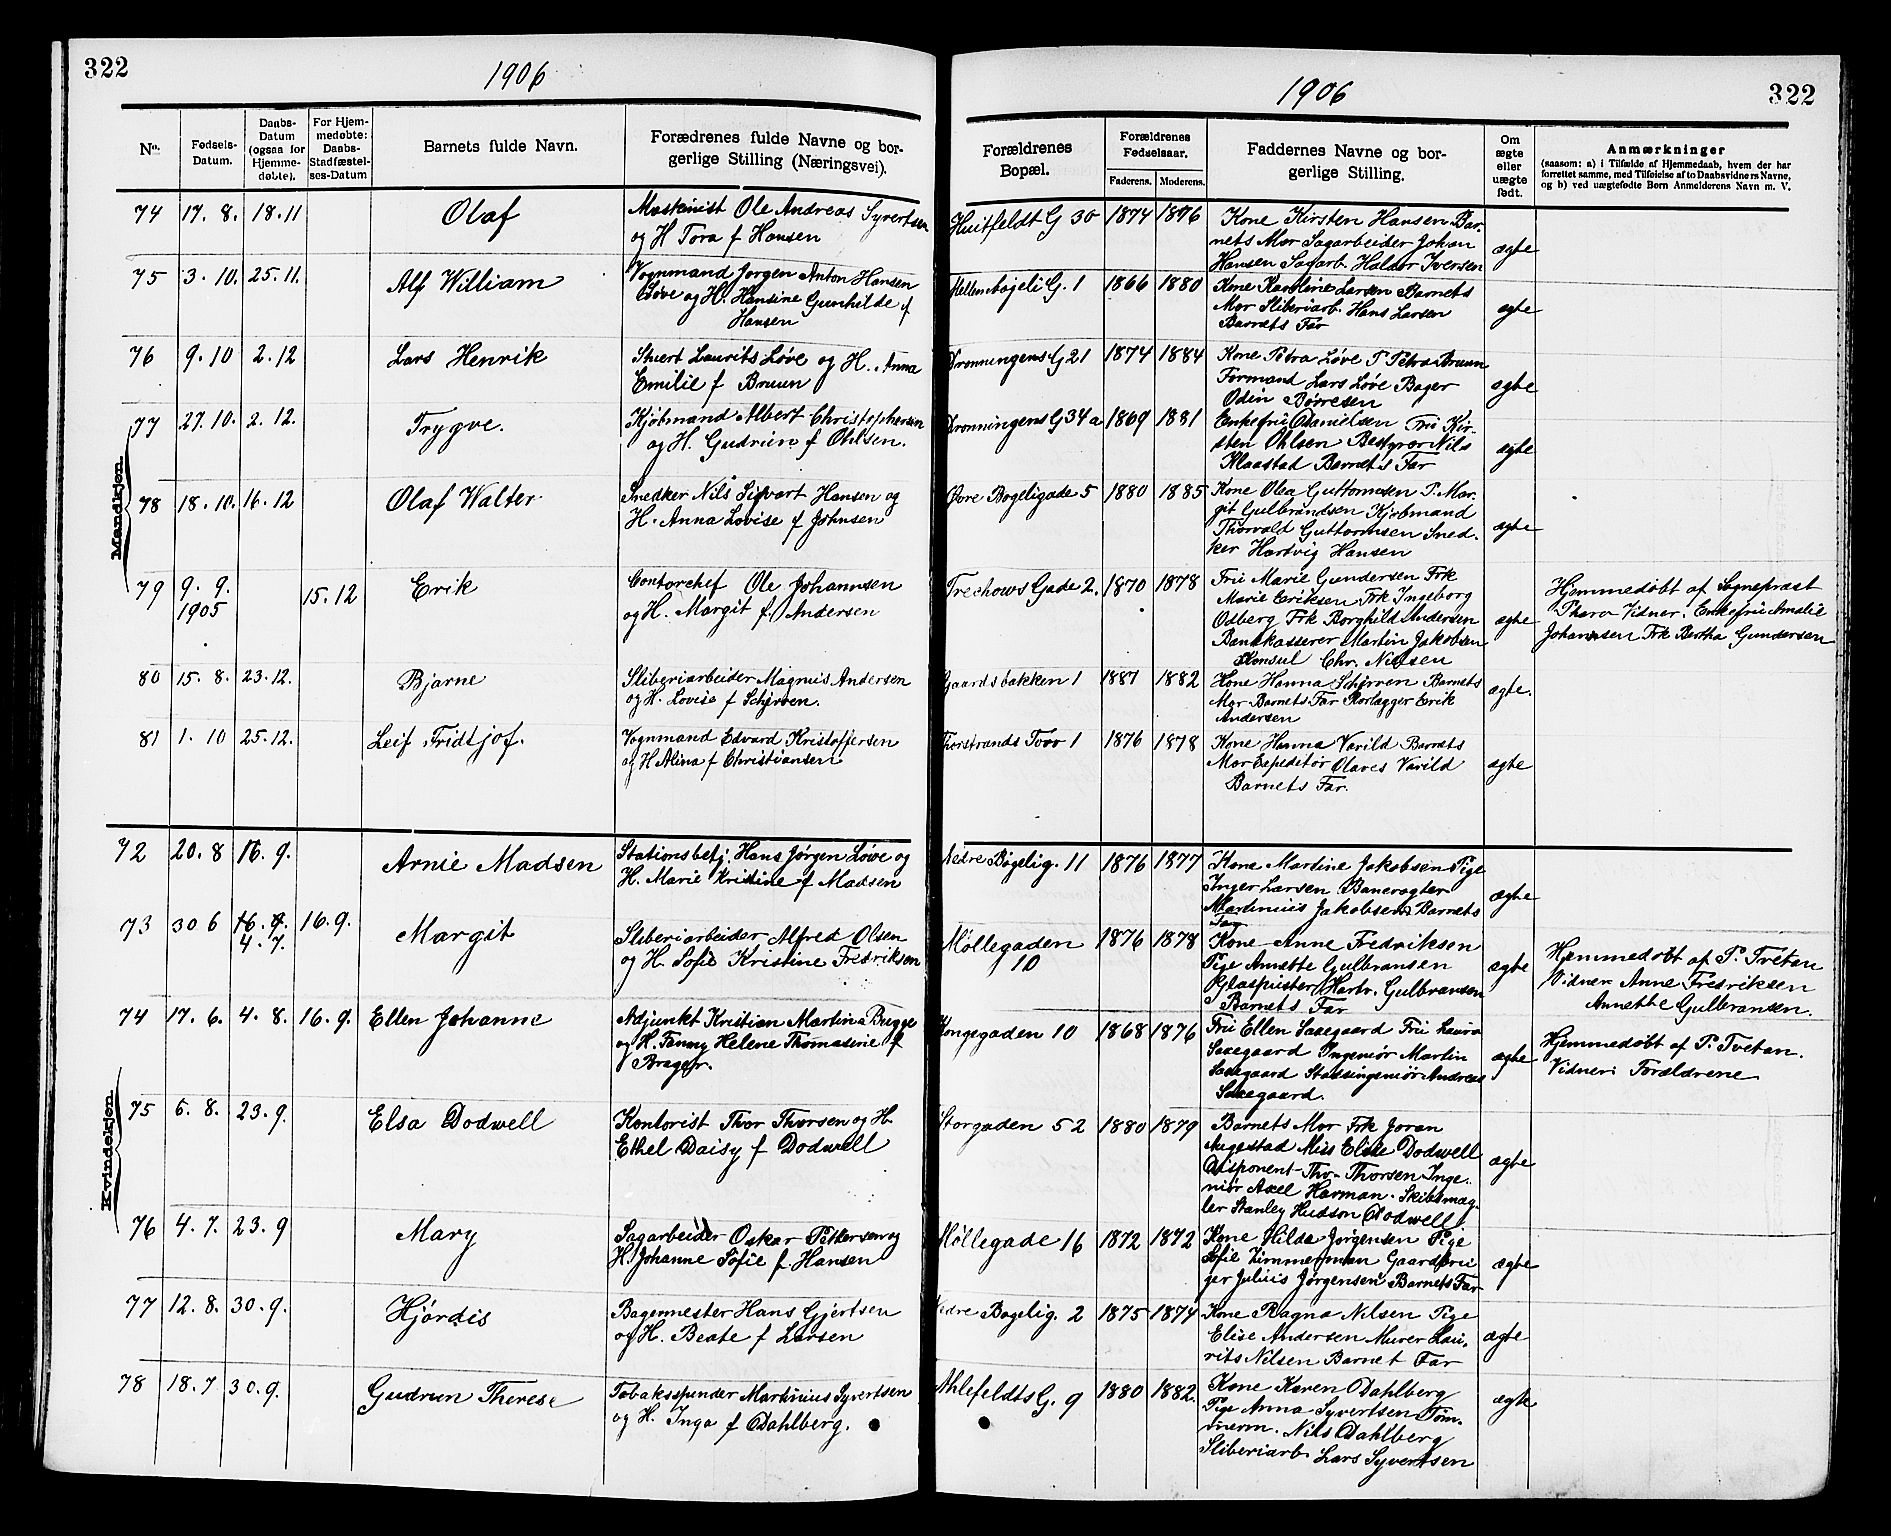 322
1906
Nº.
Fødsels-
Datum.
Daabs-
Datum
(ogsaa for
Hjemme-
døbte).
For Hjem-
medøbte:
Daabs-
Stadfæstel-
ses-Datum
Barnets fulde Navn.
Forædrenes fulde Navne og bor-
gerlige Stilling (Næringsvei).
1906
322
Forældrenes
Bopæl.
Forældrenes
Fødselsaar.
Faderens. Moderens.
Faddernes Navne og bor-
gerlige Stilling.
Om
ægte
eller
uægte
født.
Anmærkninger
(saasom: a) i Tilfælde af Hjemmedaab, hvem der har
forrettet samme, med Tilføielse af to Daabsvidners Navne,
og b) ved uægtefødte Børn Anmelderens Navn m. V.
Mandkjøn.
74 17. 8. 18. 11 Olaf
Maskinist Ole Andreas Syvertsen
og H Tora f Hansen
Huitfeldt G 30 1874 1876
Kone Kirsten Hansen Bar-
nets Mor Sagarbeider Johan
Hansen Sagarb. Haldor Iversen
ægte
75 3. 10. 25. 11. Alf William
Vognmand Jørgen Anton Hansen
Løve og H. Hansine Gunhilde f
Hansen
G. 1 1866 1880
Kone Karoline Larsen Barnets
Mor Sliberiarb. Hans Larsen
Barnets Far
ægte
76 9. 10 2. 12 Lars Henrik
Stuert Laurits Løve og H. Anna
Emilie f Bruun
Dronningens G 21 1874 1884
Kone Petra Løve P. Petra Bruun
Formand Lars Løve Bager
Odin Børresen
ægte
77 27. 10. 2. 12. Trygve.
Kjøbmand Albert Christophersen
og H. Gudrun f Ohlsen.
Dronningens G 34 a 1869 1881
Enkefru Danielsen Fru Kir-
sten Ohlsen Bestyrer Nils
Klaastad Barnets Far
ægte
78 18. 10. 16. 12 Olaf Walter
Snedker Nils Sigvart Hansen og
H. Anna Lovise f Johnsen
Øvre Bøgeligade 5 1880 1885
Kone Olea Guttormsen P. Mar-
git Gulbrandsen Kjøbmand
Thorvald Guttormsen Sned-
ker Hartvig Hansen
ægte
79 9. 9. 15. 12 Erik
1905
Contorchef Ole Johannsen
og H. Margit f Andersen
Trechows Gade 2. 1870 1878
Fru Marie Gundersen Frk
Marie Eriksen Frk Ingeborg
Odberg Frk Borghild Andersen
Bankkasserer Martin Jakobsen
Konsul Chr. Nielsen
ægte
Hjemmedøbt af Sogneprest
Vidner: Enkefru Amalie
Johannsen Frk Bertha Gundersen
80 15. 8. 23. 12. Bjarne
Sliberiarbeider Magnus Andersen
og H. Lovise f Schjerven.
Gaardsbakken 1 1881 1882
Kone Hanna Schjerven Barnets
Mor Barnets Far Rørlægger Erik
Andersen
ægte.
81 1. 10 25. 12. Leif Fridtjof.
Vognmand Edvard Kristoffersen
og H Alina f Christiansen
Thorstrands Torv 1 1876 1878
Kone Hanna Varild Barnets
Mor Expeditør Olaves Varild
Barnets Far.
ægte
Kvindekjøn.
72 20. 8 16. 9. Arnie Madsen
Stationsbetj. Hans Jørgen Løve og
H. Marie Kristine f Madsen
Nedre Bøgelig. 11 1876 1877
Kone Martine Jakobsen Pige
Inger Larsen Banevogter
Martinius Jakobsen Barnets
Far
ægte
73 30 6 16. 9. 16. 9. Margit
4. 7.
Sliberiarbeider Alfred Olsen
og H. Sofie Kristine Fredriksen
Møllegaden 1876 1878
10
Kone Anne Fredriksen
Pige Annette Gulbransen
Glaspuster Hartv. Gulbransen
Barnets Far
ægte
Hjemmedøbt af P. Tvetan
Vidner: Anne Fredriksen
Annette Gulbransen.
74 17. 6. 4. 8. 16. 9. Ellen Johanne
Adjunkt Kristian Martin Brygge
og H. Fanny Helene Thomasine f
Brager.
Kongegaden 10 1868 1876
Fru Ellen Saxegaard Fru Laura
Saxegaard Ingeniør Martin
Saxegaard Stadsingeniør Andreas
Saxegaard.
ægte
Hjemmedøbt af P. Tvetan.
Vidner: Forældrene
75 6. 8. 23. 9. Elsa Dodwell
Kontorist Thor Thorsen og H.
Ethel Daisy f Dodwell
Storgaden 52 1880 1879
Barnets Mor Frk Joran
Augestad Miss Elsie Dodwell
Disponent Thv. Thorsen Inge-
niør Axel Harman. Skibsmæg-
ler Stanley Hudson Dodwell
ægte
76 4. 7. 23. 9 Mary
Sagarbeider Oskar Pettersen og
H. Johanne Sofie f. Hansen
Møllegade 16 1872 1872
Kone Hilda Jørgensen Pige
Sofie Zimmerman Gaardbru
ger Julius Jørgensen Barnets Far
ægte
77 12. 8. 30. 9. Hjørdis
Bagermester Hans Gjertsen
og H. Beate f Larsen
Nedre Bøgelig. 2 1875 1874
Kone Ragna Nilsen Pige
Elise Andersen Murer Lau-
rits Nilsen Barnet Far
ægte
78 18. 7 30. 9. Gudrun Therese
Tobaksspinder Martinius Syvertsen
og H. Inga f Dahlberg.
Ahlefeldts G. 9 1880 1882.
Kone Karen Dahlberg
Pige Anna Syvertsen Tøm-
merm. Nils Dahlberg
Sliberiarb Lars Syvertsen
ægte